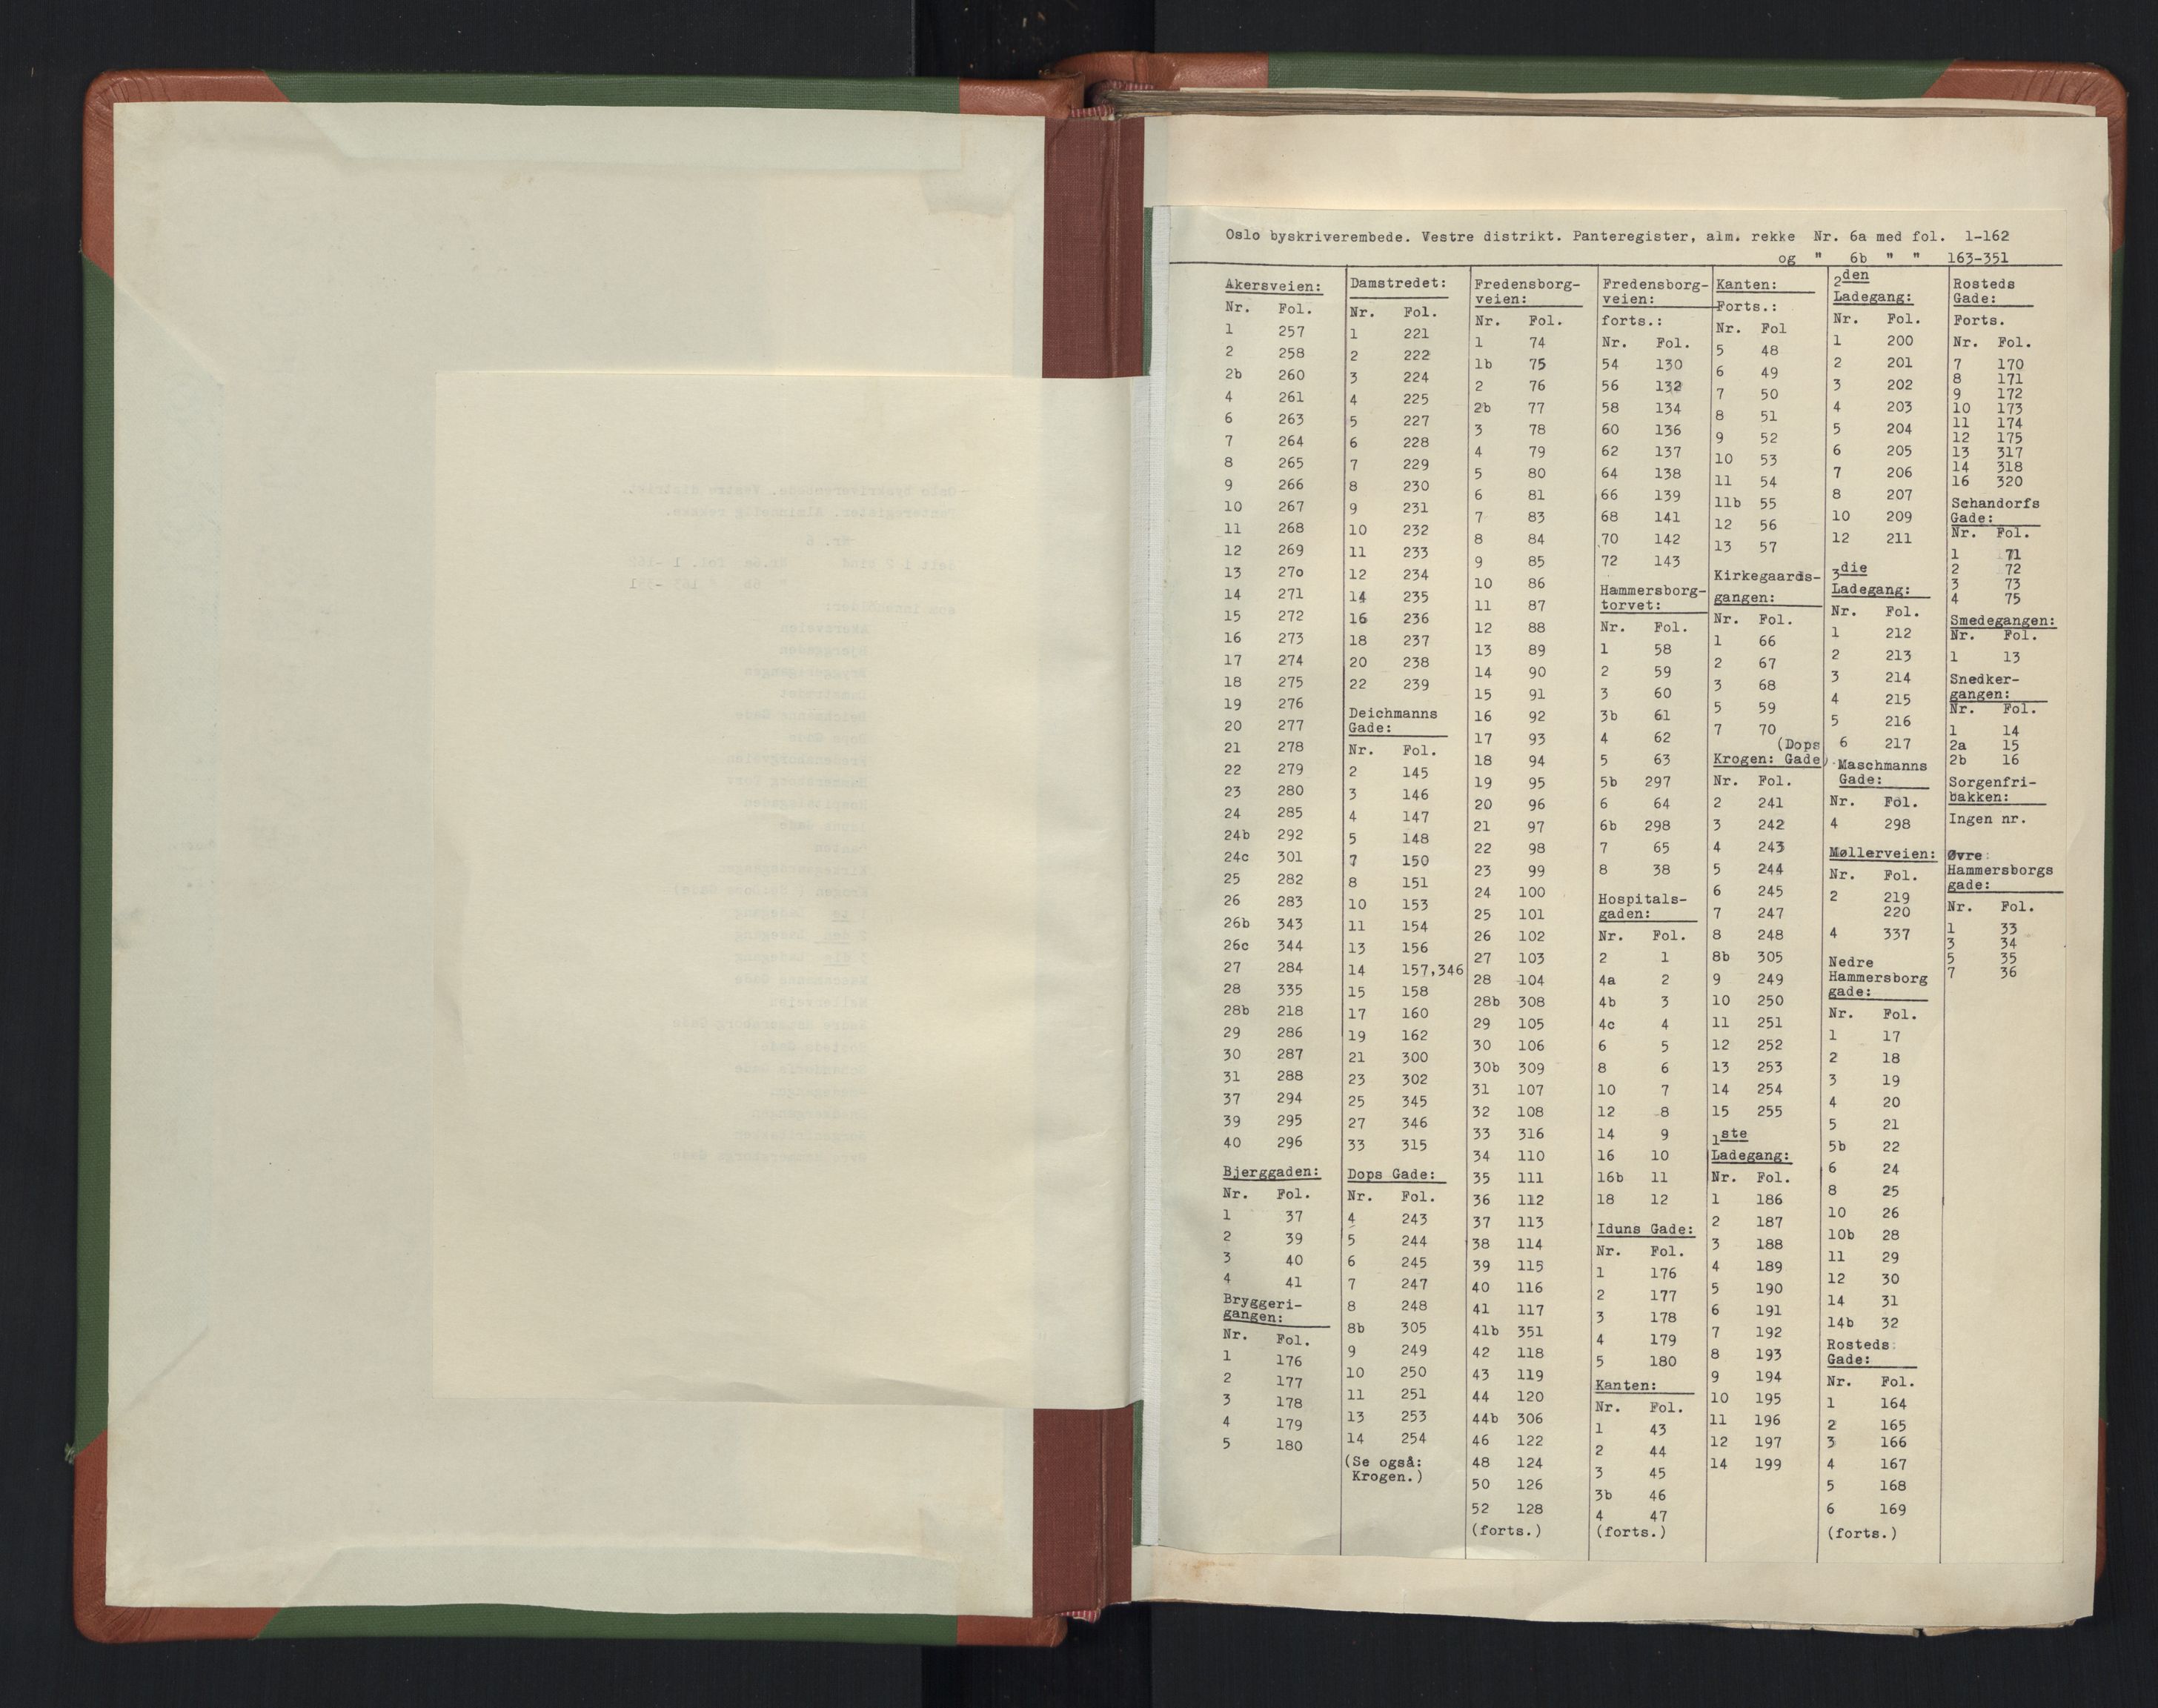 Oslo byskriverembede. Vestre distrikt. Panteregister, alm. rekke Nr. 6a med fol. 1-162
og " 6b " " 163-351
Akersveien:
Nr. Fol.
1 257
2 258
2b 260
4 261
6 263
7 264
8 265
9 266
10 267
11 268
12 269
13 270
14 271
15 272
16 273
17 274
18 275
19 276
20 277
21 278
22 279
23 280
24 285
24b 292
24c 301
25 282
26 283
26b 343
26c 344
27 284
28 335
28b 218
29 286
30 287
31 288
37 294
39 295
40 296
Bjerggaden:
Nr. Fol.
1 37
2 39
3 40
4 41
Bryggeri-
gangen:
Nr. Fol.
1 176
2 177
3 178
4 179
5 180
Damstredet:
Nr. Fol.
1 221
2 222
3 224
4 225
5 227
6 228
7 229
8 230
9 231
10 232
11 233
12 234
14 235
16 236
18 237
20 238
22 239
Deichmanns
Gade:
Nr. Fol.
2 145
3 146
4 147
5 148
7 150
8 151
10 153
11 154
13 156
14 157,346
15 158
17 160
19 162
21 300
23 302
25 345
27 346
33 315
Dops Gade:
Nr. Fol.
4 243
5 244
6 245
7 247
8 248
8b 305
9 249
10 250
11 251
13 253
14 254
(Se også:
Krogen.)
Fredensborg-
veien:
Nr. Fol.
1 74
1b 75
2 76
2b 77
3 78
4 79
5 80
6 81
7 83
8 84
9 85
10 86
11 87
12 88
13 89
14 90
15 91
16 92
17 93
18 94
19 95
20 96
21 97
22 98
23 99
24 100
25 101
26 102
27 103
28 104
28b 308
29 105
30 106
30b 309
31 107
32 108
33 316
34 110
35 111
36 112
37 113
38 114
39 115
40 116
41 117
41b 351
42 118
43 119
44 120
44b 306
46 122
48 124
50 126
52 128
(forts.)
Fredensborg-
veien:
forts.:
Nr. Fol.
54 130
56 132
58 134
60 136
62 137
64 138
66 139
68 141
70 142
72 143
Hammersborg-
torvet:
Nr. Fol.
1 58
2 59
3 60
3b 61
4 62
5 63
5b 297
6 64
6b 298
7 65
8 38
Hospitals-
gaden:
Nr. Fol.
2 1
4a 2
4b 3
4c 4
6 5
8 6
10 7
12 8
14 9
16 10
16b 11
18 12
Iduns Gade:
Nr. Fol.
1 176
2 177
3 178
4 179
5 180
Kanten:
Nr. Fol.
1 43
2 44
3 45
3b 46
4 47
(forts.)
Kanten:
Forts.:
Nr. Fol
5 48
6 49
7 50
8 51
9 52
10 53
11 54
11b 55
12 56
13 57
Kirkegaards-
gangen:
Nr. Fol.
1 66
2 67
3 68
5 59
7 70
(Dops
Krogen: Gade)
Nr. Fol.
2 241
3 242
4 243
5 244
6 245
7 247
8 248
8b 305
9 249
10 250
11 251
12 252
13 253
14 254
15 255
1ste
Ladegang:
Nr. Fol.
1 186
2 187
3 188
4 189
5 190
6 191
7 192
8 193
9 194
10 195
11 196
12 197
14 199
2den
Ladegang:
Nr. Fol.
1 200
2 201
3 202
4 203
5 204
6 205
7 206
8 207
10 209
12 211
3die
Ladegang:
Nr. Fol.
1 212
2 213
3 214
4 215
5 216
6 217
Maschmanns
Gade:
Nr. Fol.
4 298
Møllerveien:
Nr. Fol.
2 219
220
4 337
Nedre
Hammersborg
gade:
Nr. Fol.
1 17
2 18
3 19
4 20
5 21
5b 22
6 24
8 25
10 26
10b 28
11 29
12 30
14 31
14b 32
Rosteds
Gade:
Nr. Fol.
1 164
2 165
3 166
4 167
5 168
6 169
(forts.)
Rosteds
Gade:
Forts.
Nr. Fol.
7 170
8 171
9 172
10 173
11 174
12 175
13 317
14 318
16 320
Schandorfs
Gade:
Nr. Fol.
1 71
2 72
3 73
4 75
Smedegangen:
Nr. Fol.
1 13
Snedker-
gangen:
Nr. Fol.
1 14
2a 15
2b 16
Sorgenfri-
bakken:
Ingen nr.
Øvre
Hammersborgs
gade:
Nr. Fol.
1 33
3 34
5 35
7 36